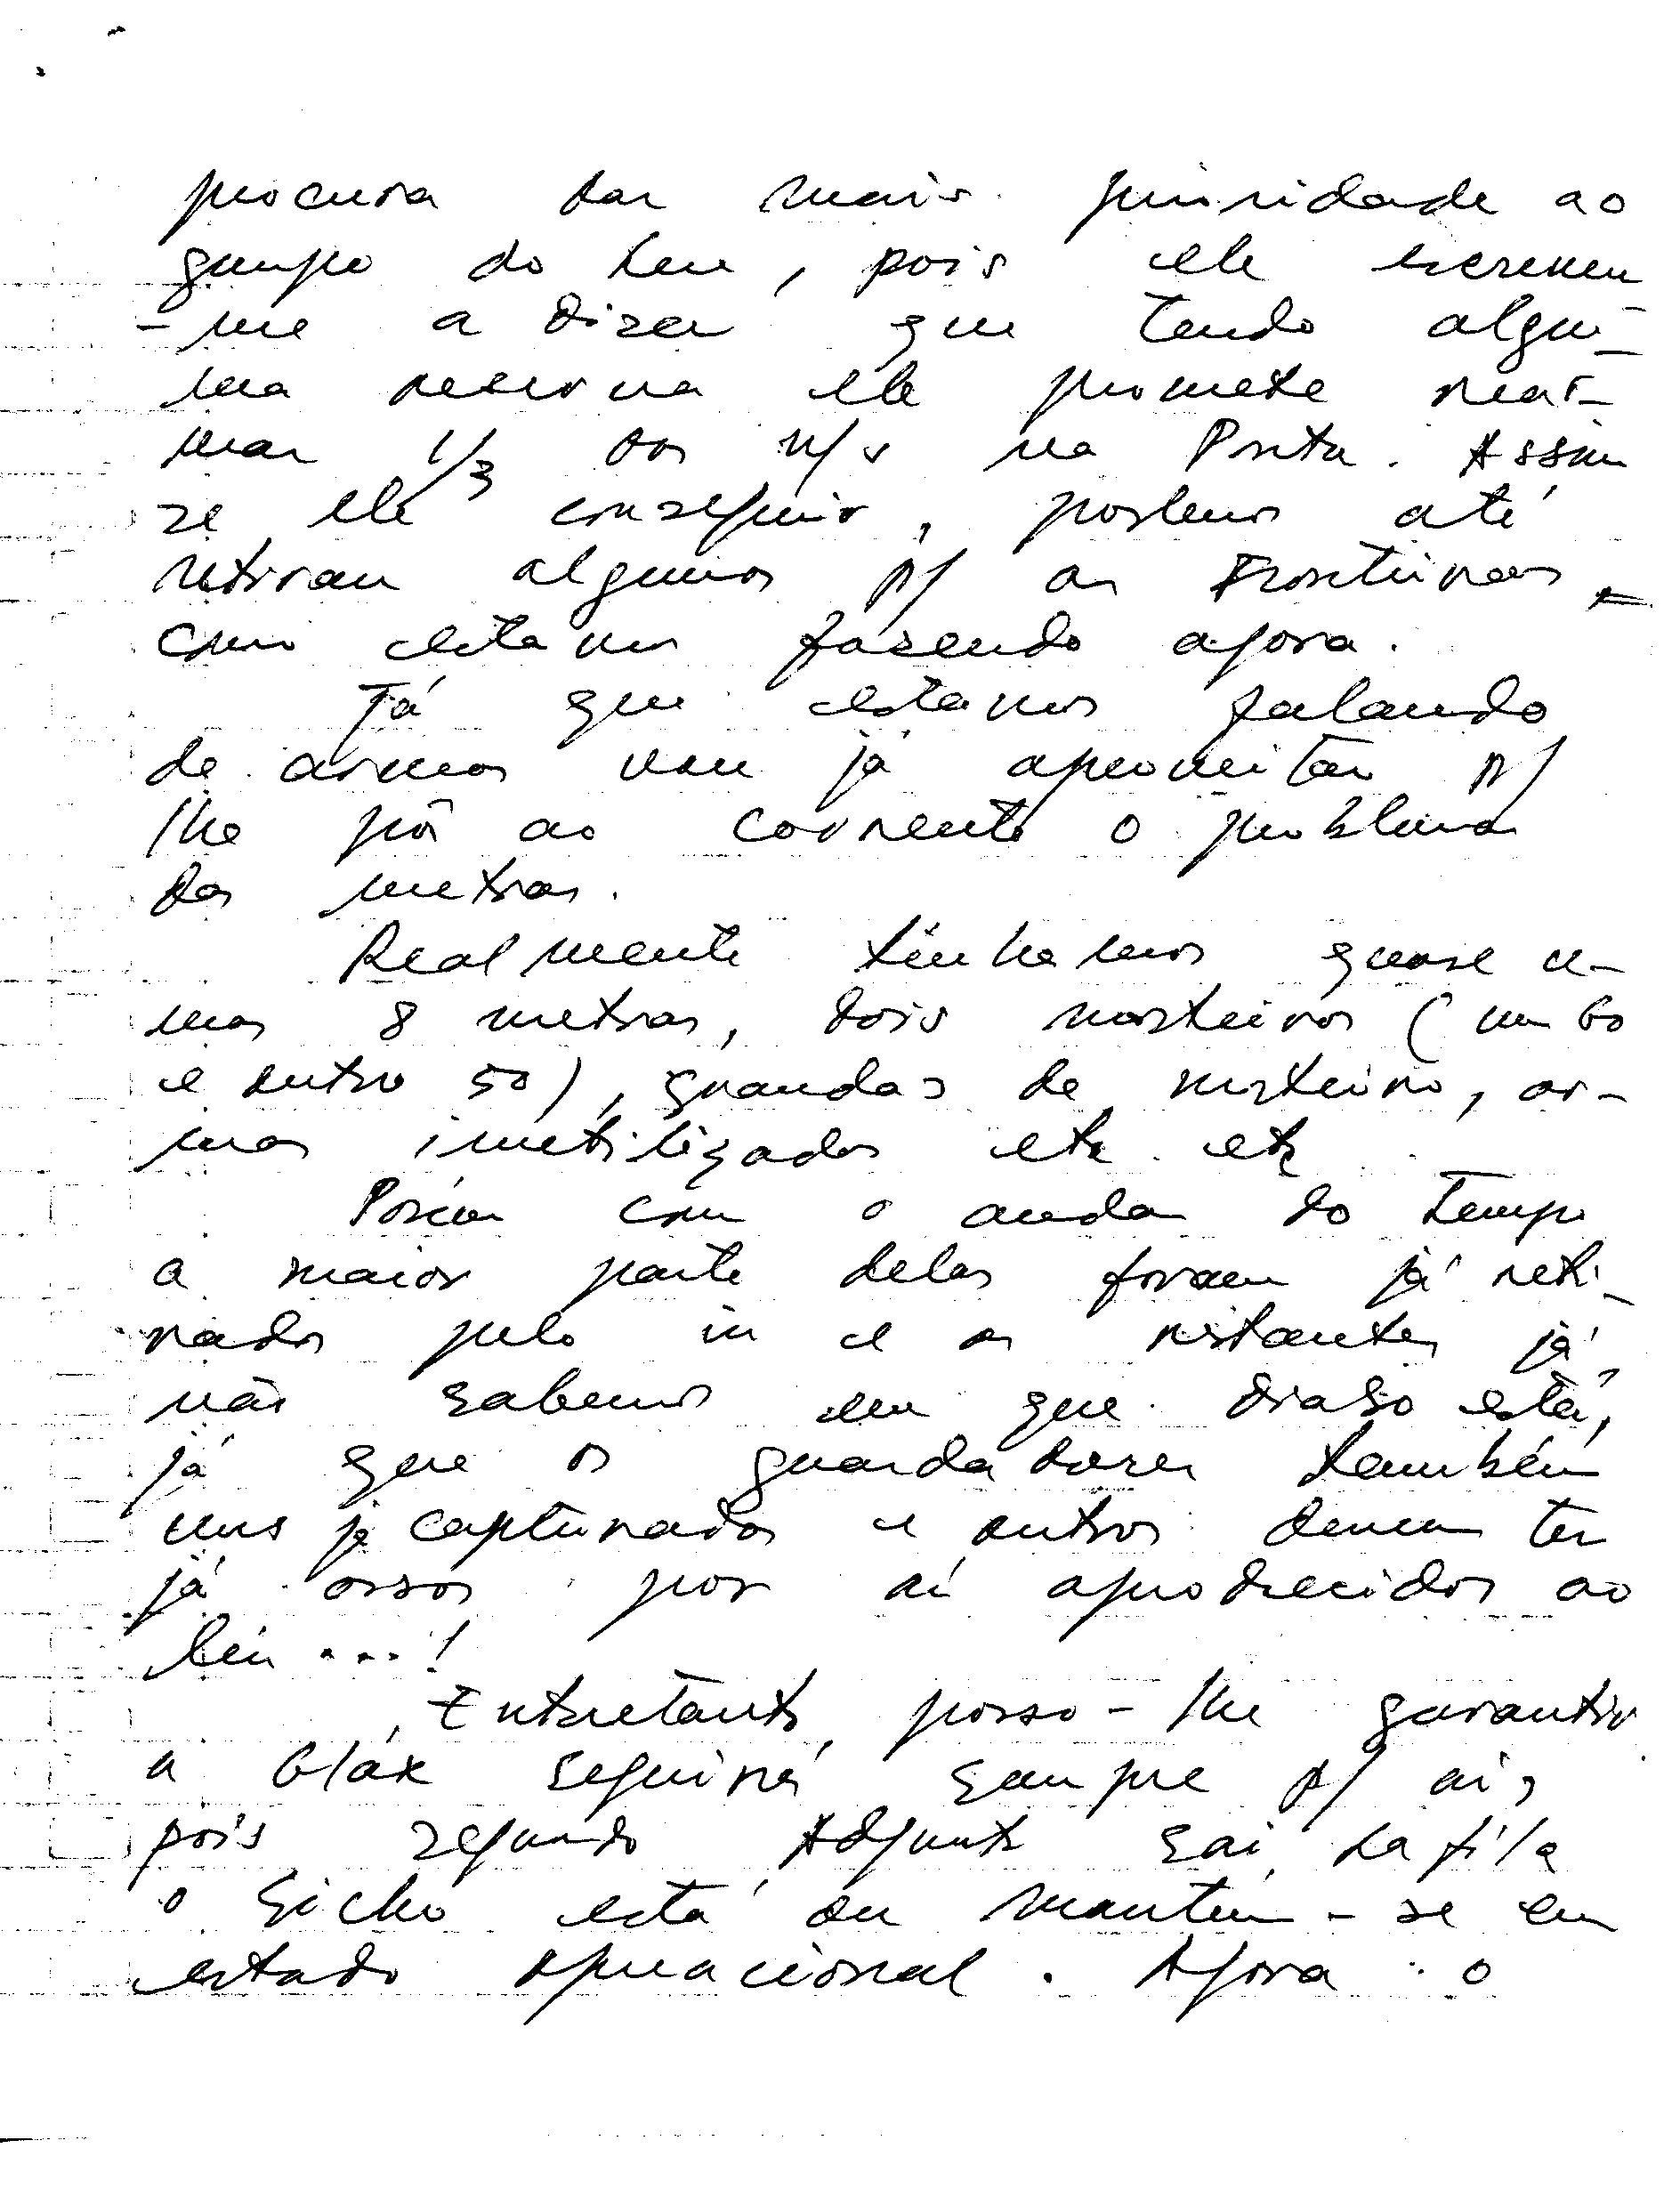 procura dar mais prioridade ao
grupo do Leu, pois ele escreveu
-me a dizer que tendo algu-
ma reserva ele promete rear-
mar 1/3 dos n/s na Ponta. Assim
se ele conseguir, podemos até
retirar algumas p/ as Fronteiras
como estamos fazendo agora.
Já que estamos falando
de armas vou já aproveitar p/
lhe pôr ao corrente o problema
das metras.
Realmente tinhamos quase u-
mas 8 metras, dois morteiros (um 60
e outro 50), granadas de morteiro, ar-
mas inutilizadas etc. etc
Porém com o andar do tempo
a maior parte delas foram já reti-
radas pelo in e as restantes já
não sabemos em que diabo está,
já que os guardadores também
uns já capturados e outros devem ter
já ossos por aí apodrecidos ao
léu ...!
Entretanto, posso-lhe garantir
a Gláx seguirá sempre p/ aí,
pois segundo Adjunto Sai da fila
o bicho está ou mantém-se em
estado operacional. Agora o